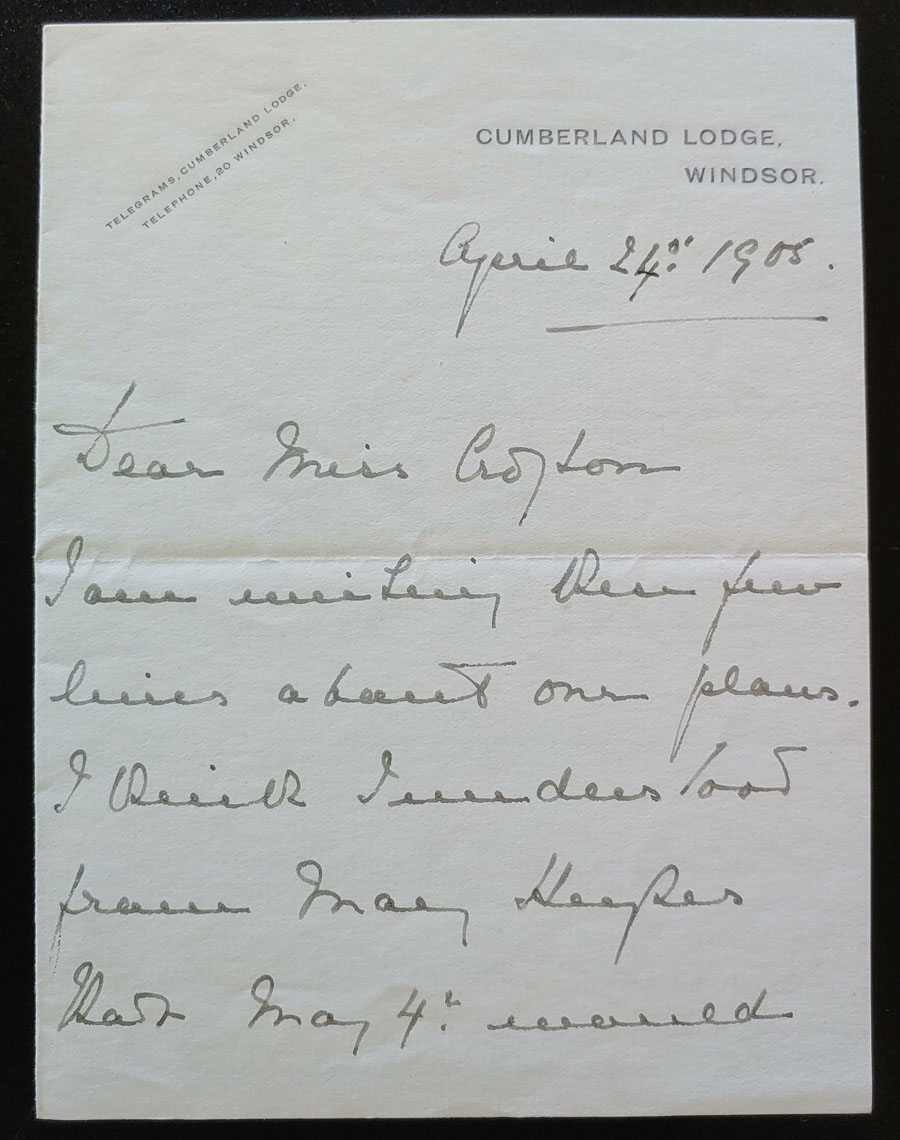 TELEGRAMS, CUMBERLAND LODGE.
TELEPHONE, 20 WINDSOR.
CUMBERLAND LODGE,
WINDSOR.
April 24th 1905.
Dear Miss Crofton
I am writing these few
lines about our plans.
I think I understood
from Mary Hughes
that May 4th would